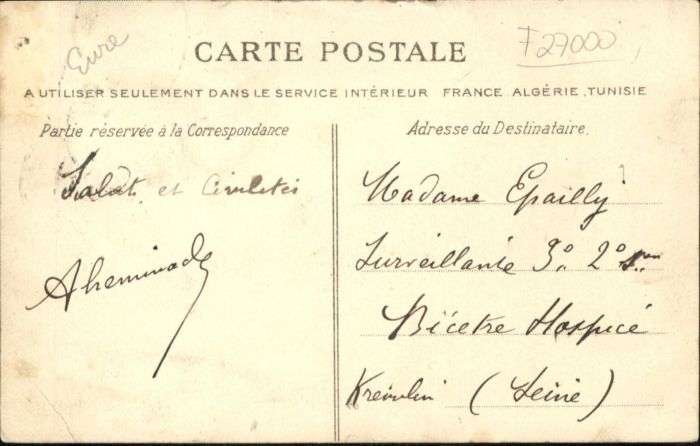 Eure
F27000
CARTE POSTALE
A UTILISER SEULEMENT DANS LE SERVICE INTÉRIEUR FRANCE ALGÉRIE, TUNISIE
Partie réservée à la Correspondance
Salut et Civilités
Adresse du Destinataire
Madame Epailly
Surveillante 3º 2º
Bicetre Hospice
Kremlin (Seine)